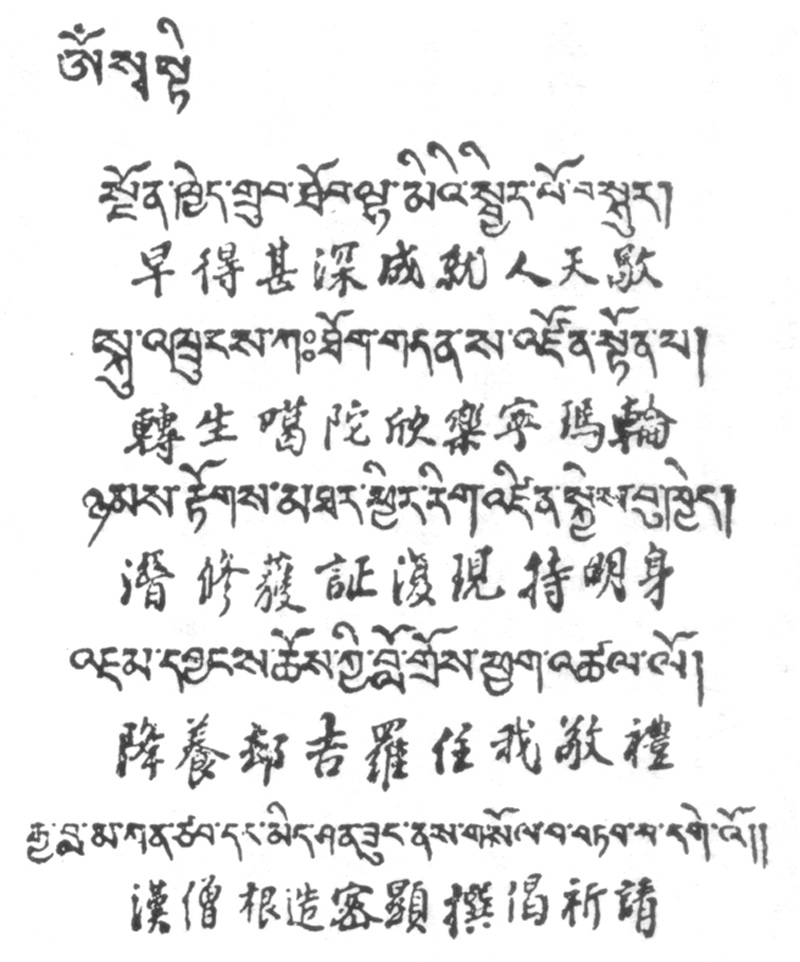 ཨོཾ་སྭ་སྟི
སྔོན་ཁྱེད་གྲུབ་ཐོབ་ལྷ་མིའི་སྤྱིར་པོ་བསྐུར།
早得甚深成就人天歌
སྐུ་འཁྲུངས་ཀཿཐོག་གདན་ས་འཛིན་སྟོན་པ།
轉生噶陀欣樂寧瑪輪
ཉམས་རྟོགས་མཐར་ཕྱིར་རིག་འཛིན་སྐྱེས་བུ་ཁྱེད།
潛修獲証復現持明身
འཇམ་དབྱངས་ཆོས་ཀྱི་བློ་གྲོས་ཕྱག་འཚལ་ལོ།
降養郄吉羅住我敬禮
རྒྱ་བླ་མ་ཀན་ཙབ་དང་མིད་ཤན་ཟུང་ནས་གསོལ་བ་བཏབ་པ་དགེའོ།།
漢僧根造密顯撰偈祈請